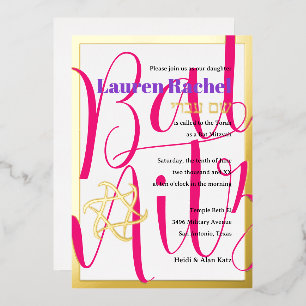 Please join us as our daughter
Lauren Rachel
שם עברי
is called to the Torah
as a Bat Mitzvah
Saturday, the tenth of June
two thousand and XX
at ten o'clock in the morning
Temple Beth El
3496 Military Avenue
San Antonio, Texas
Heidi & Alan Katz
Bat
Mitz